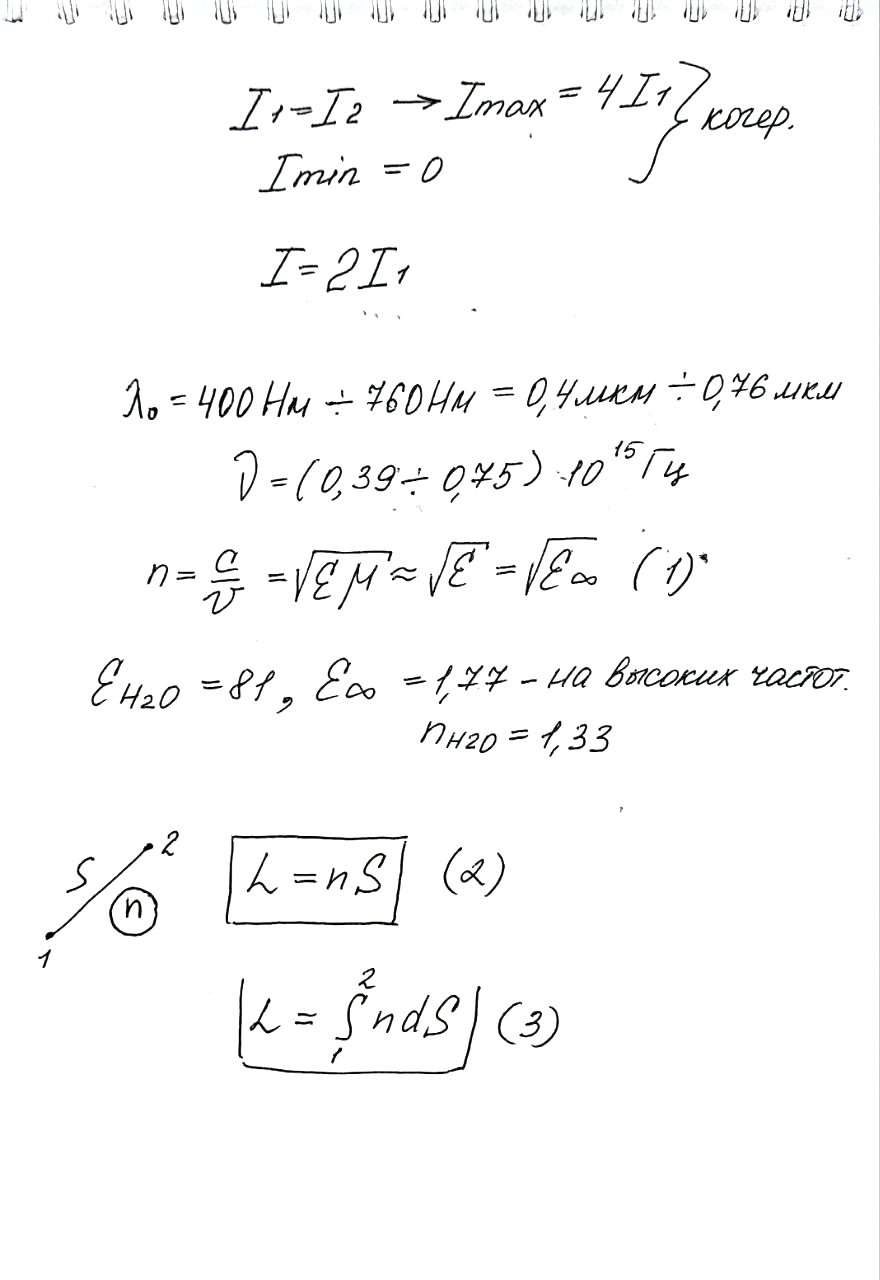 I₁=I₂ → Imax = 4I₁ } когер.
Imin = 0
I=2I₁
λ₀ = 400 Нм ÷ 760 Нм = 0,4 мкм ÷ 0,76 мкм
ν = (0,39 ÷ 0,75) · 10¹⁵ Гц
n = c/v = √εμ ≈ √ε = √ε∞ (1)
εH₂O = 81, ε∞ = 1,77 – на высоких частот.
nH₂O = 1,33
S 1 2 n
L = nS (2)
L = ∫₁² n dS (3)